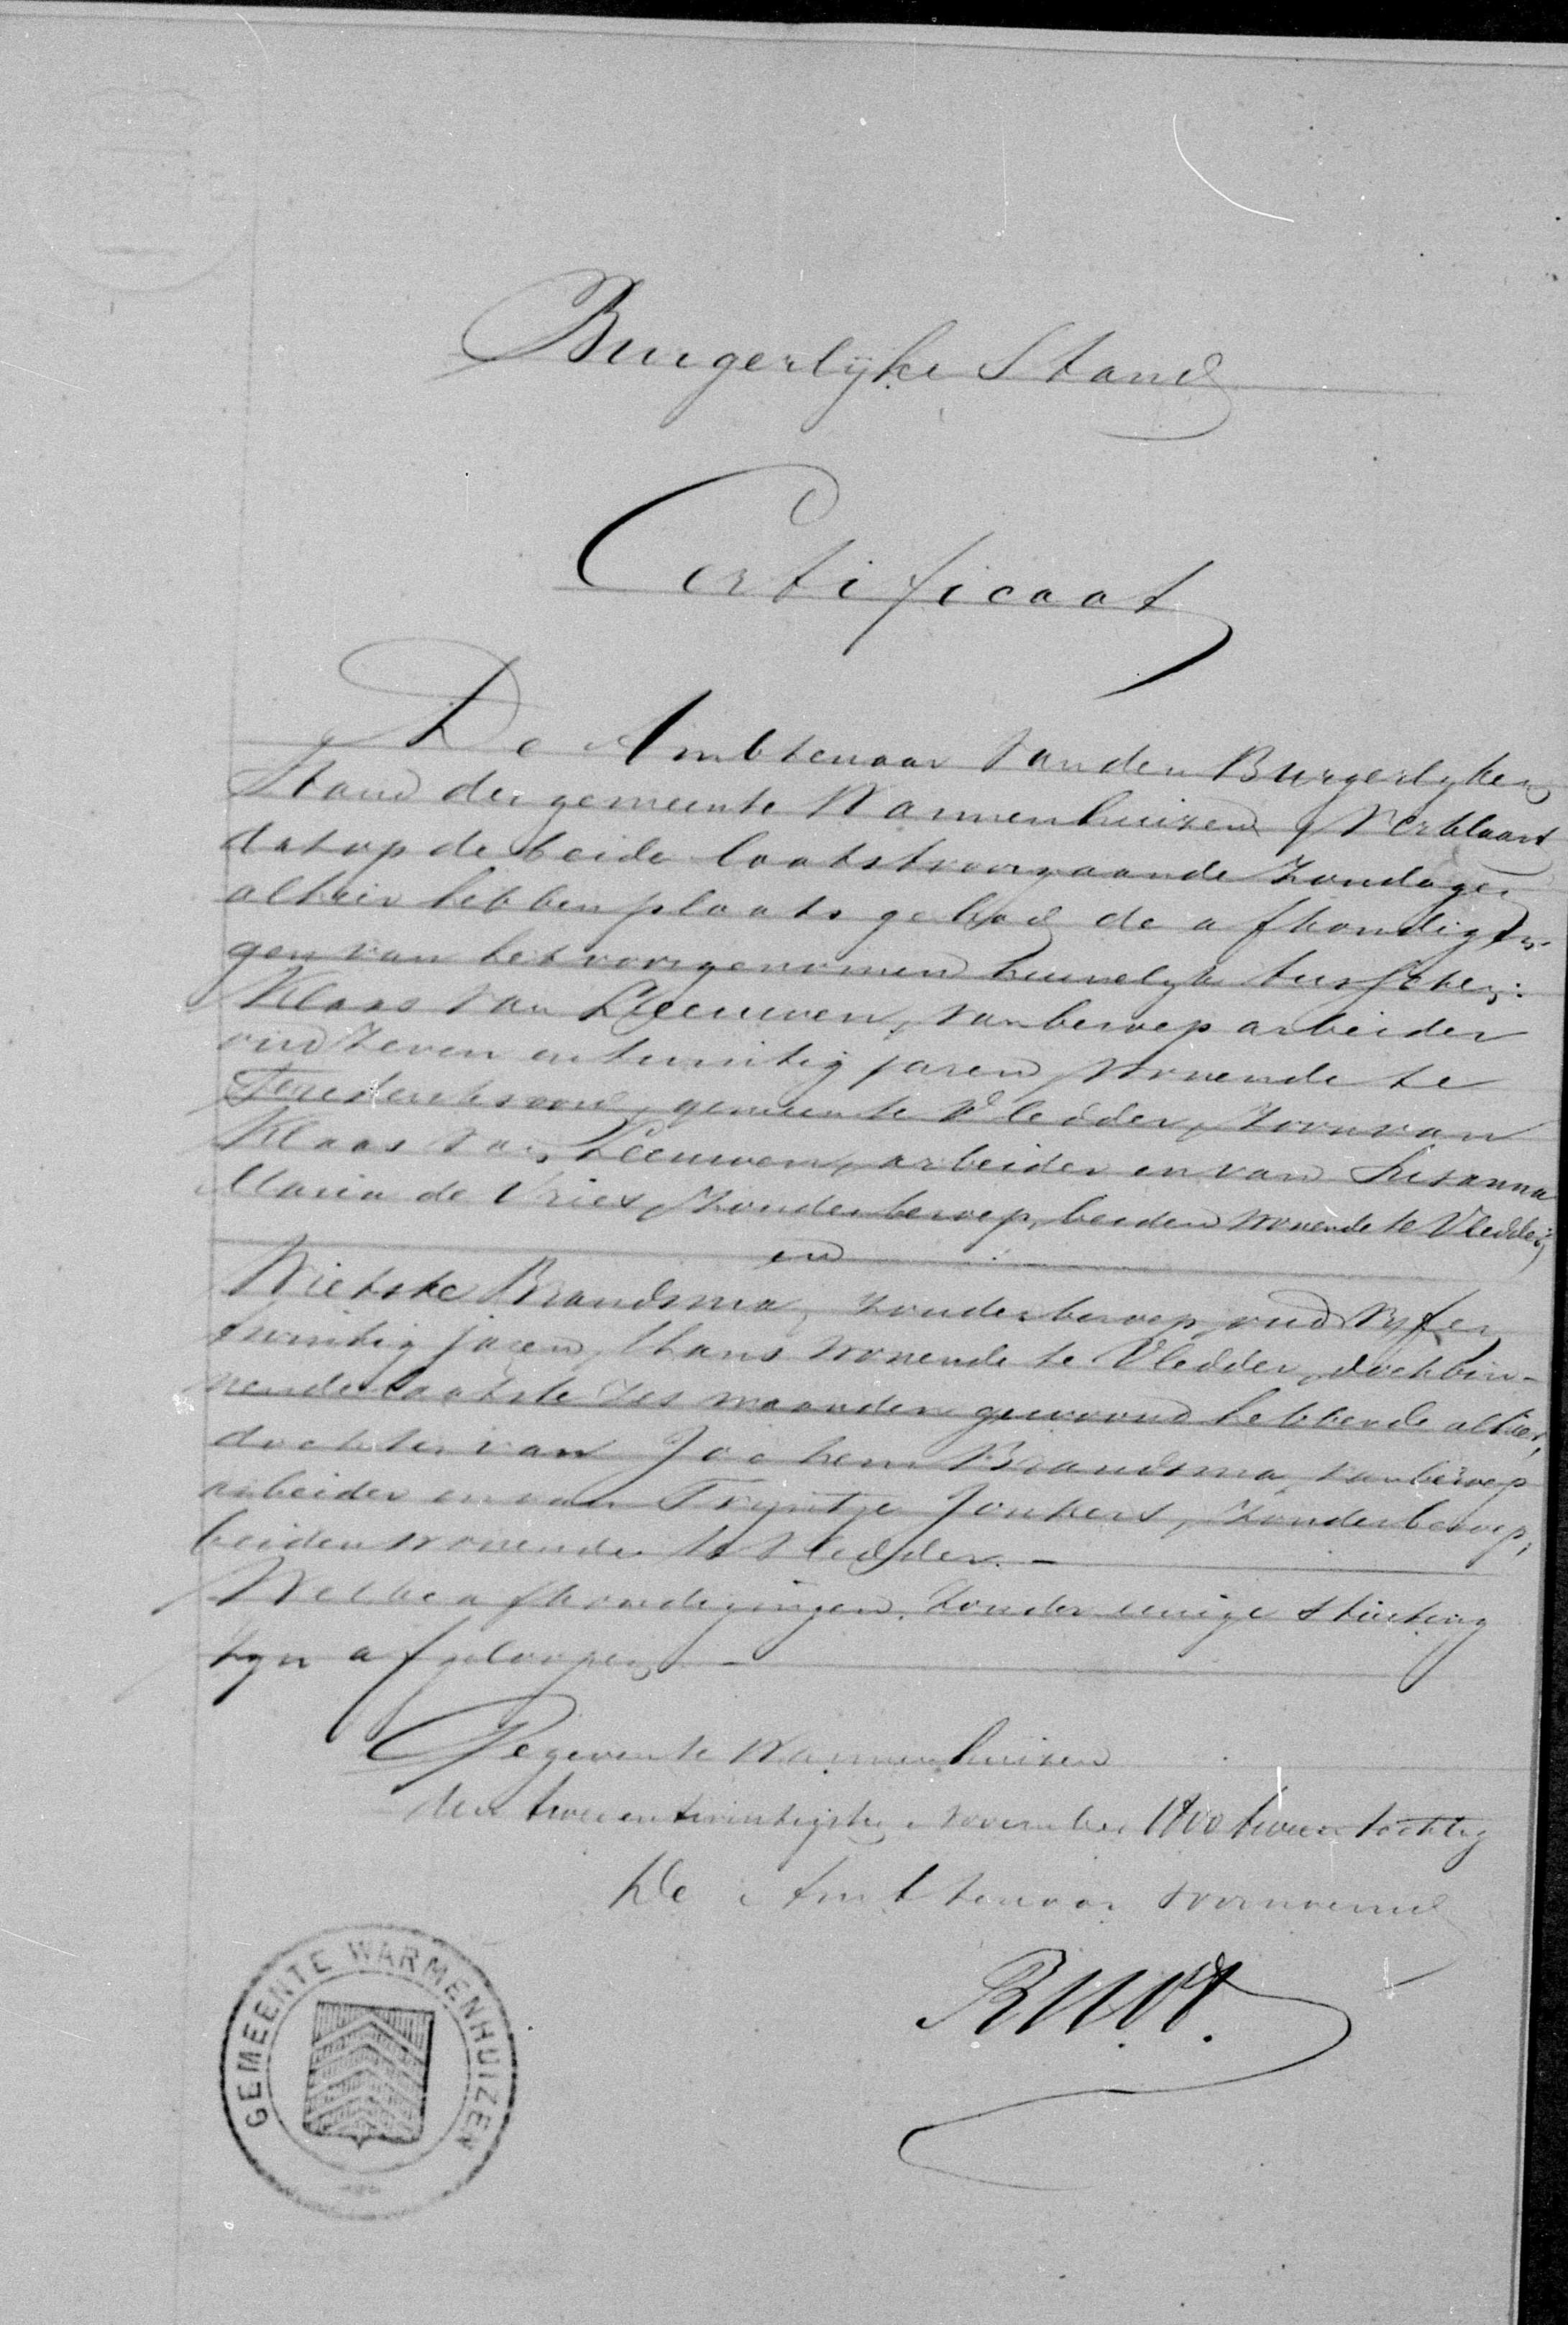 Burgerlijke Stand
Certificaat
De Ambtenaar van den Burgerlyken
Stand der gemeente Warmenhuizen, Verklaart
dat op de beide laatstvoorgaande Zondagen
alhier hebben plaats gehad de afkondigin-
gen van het voorgenomen huwelijk tusschen:
Klaas van Leeuwen, van beroep arbeider
oud zeven en twintig jaren, wonende te
Frederiksoord, gemeente Vledder, zoon van
Klaas van Leeuwen, arbeider en van Susanna
Maria de Vries, zonder beroep, beiden wonende te Vledder,
en
Wietske Brandsma, zonder beroep, oud vyf en
twintig jaren, thans wonende te Vledder, doch bin-
nen de laatste zes maanden gewoond hebbende alhier,
dochter van Jochem Brandsma, van beroep
arbeider en van Tryntje Jonkers, zonder beroep,
beiden wonende te Vledder. -
Welke afkondigingen zonder eenige stuiting
zyn afgeloopen. -
Gegeven te Warmenhuizen
den twee en twintigsten November 1800 twee en tachtig
De Ambtenaar voornoemd
GEMEENTE WARMENHUIZEN